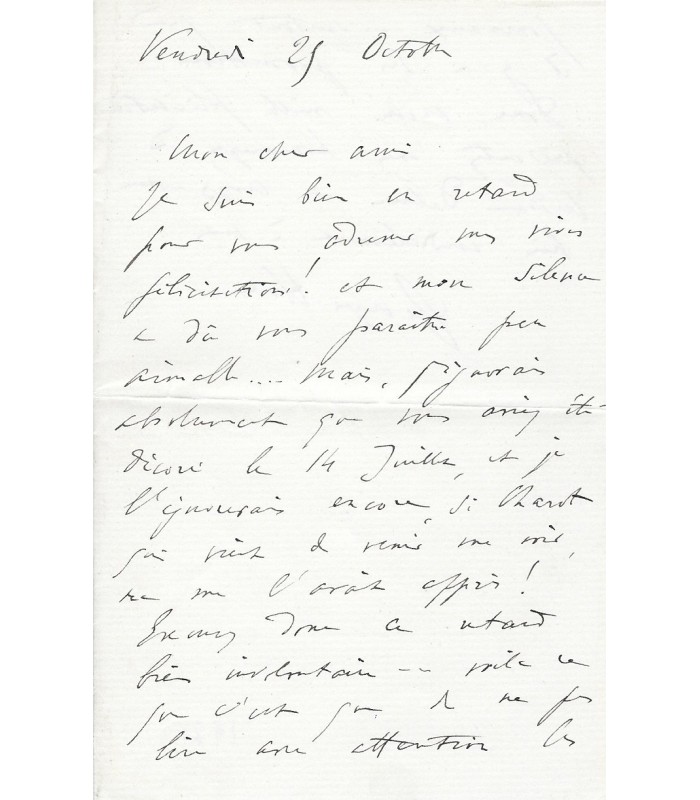 Vendredi 25 Octobre
Mon cher ami
Je suis bien en retard
pour vous adresser mes vives
félicitations! et mon silence
a dû vous paraître peu
aimable.... Mais, j'ignorais
absolument que vous aviez été
décoré le 14 Juillet, et je
l'ignorerais encore, si Charot
qui vient de venir me voir,
ne me l'avait appris!
Excusez donc ce retard
bien involontaire -- voilà ce
que c'est que de ne pas
lire avec attention les